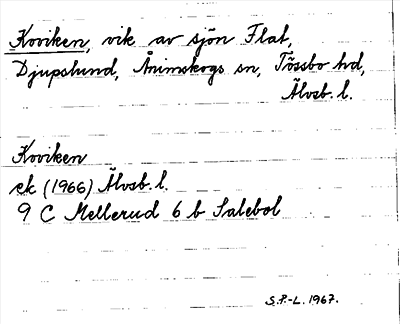 Koviken, vik av sjön Flat,
Djupslund, Ånimskogs sn, Tössbo hd,
Älvsb. l.
Koviken
ek (1966) Älvsb. l.
9 C Mellerud 6 b Salebol
S.P.-L. 1967.